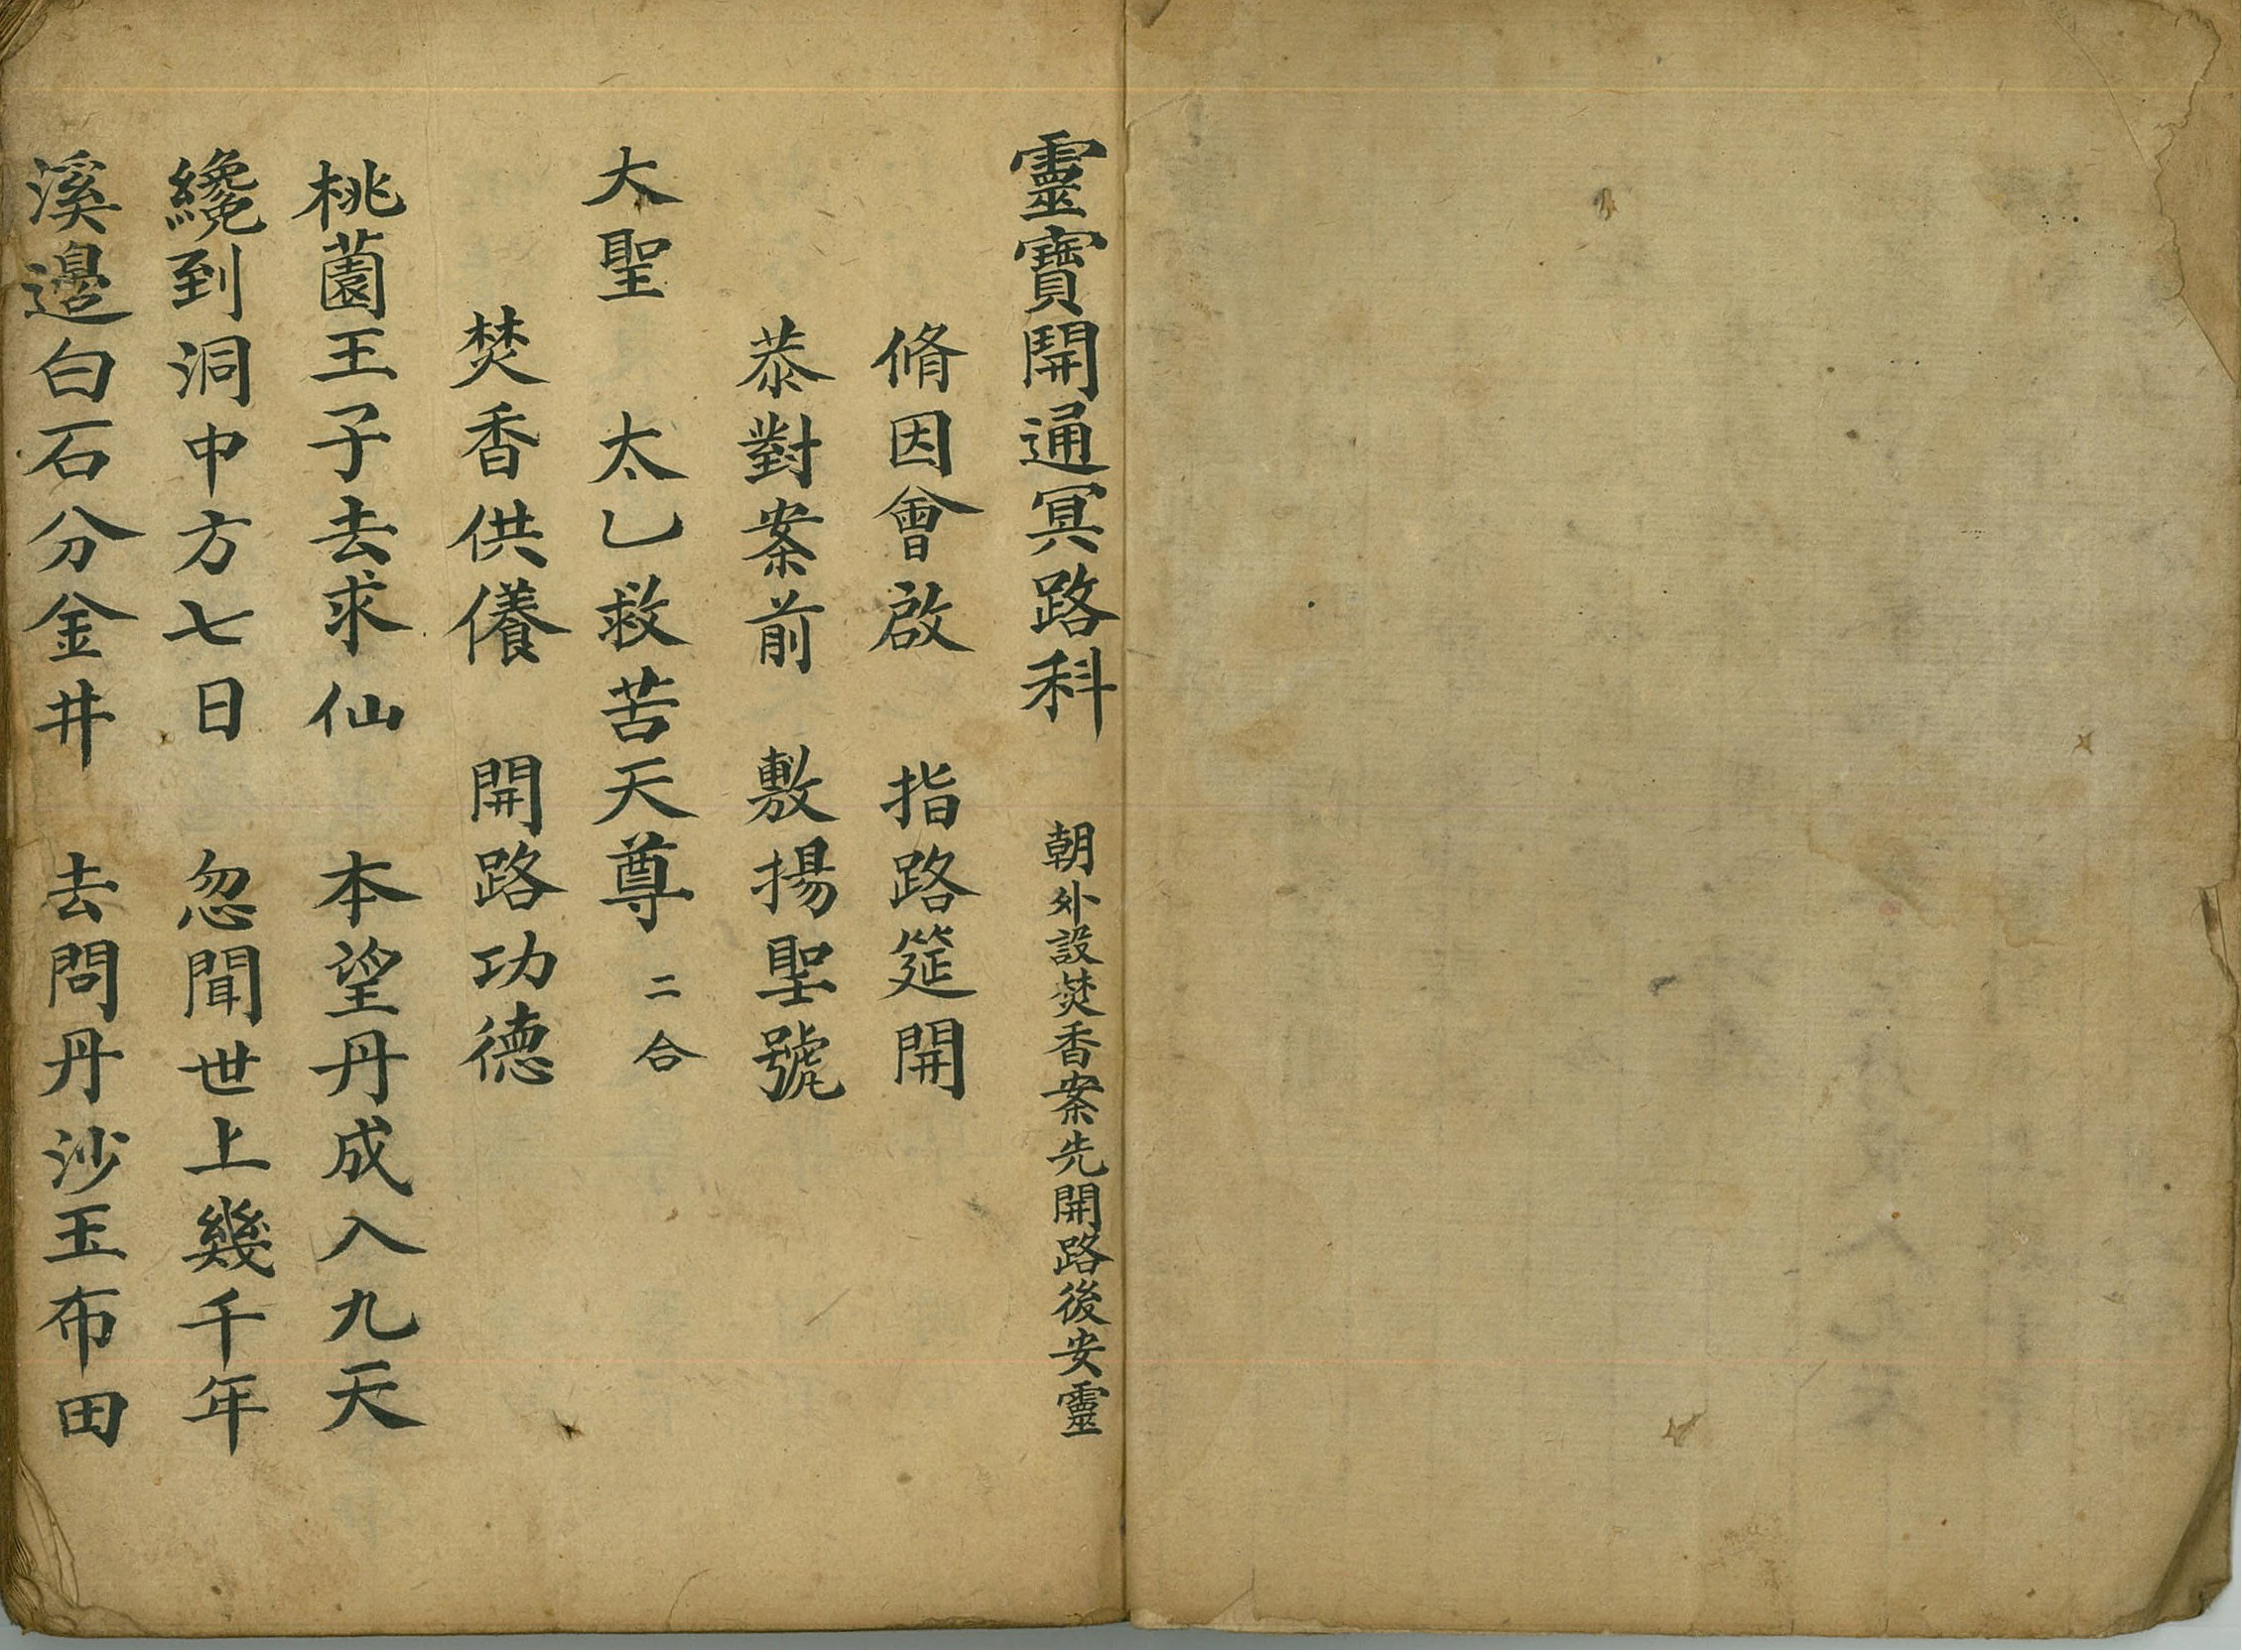 靈寶開通冥路科 朝外設焚香案先開路後安靈
脩因會啟 指路筵開
恭對案前 敷揚聖號
大聖 太乙救苦天尊 二合
焚香供儀 開路功德
桃薗王子去求仙 本望丹成入九天
纔到洞中方七日 忽聞世上幾千年
溪邉白石分金井 去問丹沙玉布田